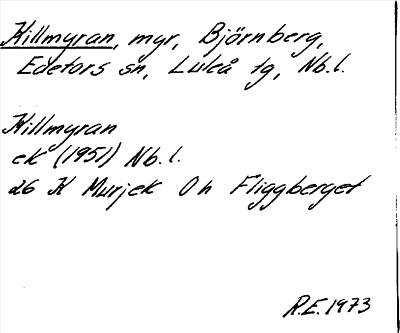 Killmyran, myr, Björnberg,
Edefors sn, Luleå tg, Nb.l.
Killmyran
ek (1951) Nb.l.
26 K Murjek 0 h Fliggberget
R.E. 1973